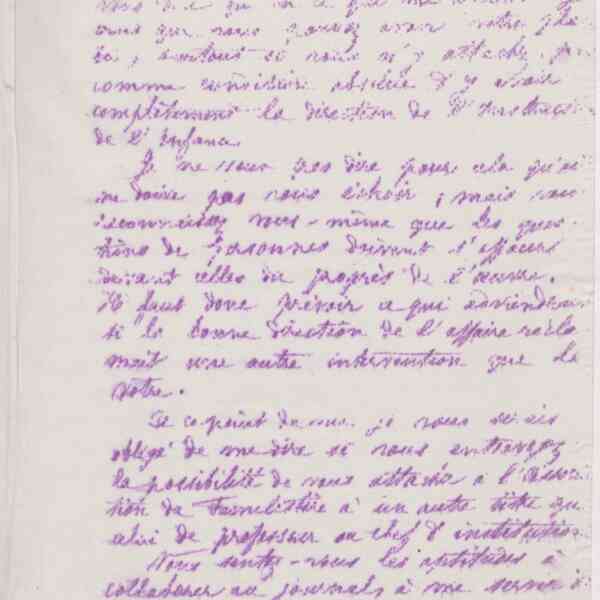 que vous pouvez avoir votre pla
ce, surtout si vous n'y attachez pas
comme condition absolue d'y avoir
complètement la direction de l'instruct
de l'Enfance.
Je ne veux pas dire pour cela qu'el
ne doive pas vous échoir ; mais vous
reconnaissez vous-même que les ques
tions de personnes doivent s'effacer
devant celles du progrès de l'œuvre.
Il faut donc prévoir ce qui adviendrait
si la bonne direction de l'affaire récla
mait une autre intervention que la
votre.
De ce point de vue, je vous serais
obligé de me dire si vous entrevoyez
la possibilité de vous attacher à l'associa
tion du Familistère à un autre titre que
celui de professeur ou chef d'institution
Vous sentez-vous les aptitudes à
collaborer au journal, à me servir de